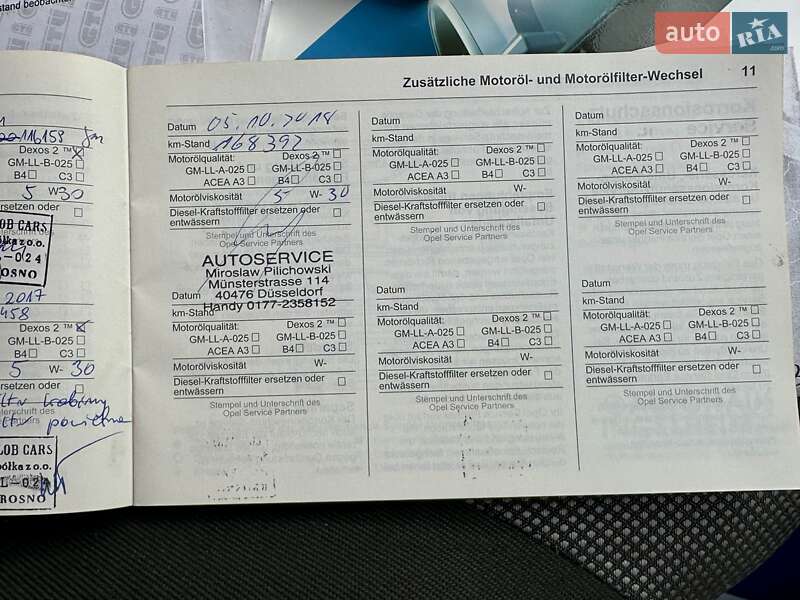 stand beobacht
auto RIA .com
Zusätzliche Motoröl- und Motorölfilter-Wechsel 11
116158
Dexos 2 ™
GM-LL-B-025
B4 C3
5 W 30
ersetzen oder
LOB CARS
ółka z o.o.
-024
ROSNO
2017
458
Dexos 2 ™
GM-LL-B-025
B4 C3
5 W- 30
ersetzen oder
Unterschrift des
LOB CARS
półka z o.o.
L-024
ROSNO
Datum 05.10.2018
km-Stand 168392
Motorölqualität: Dexos 2 ™
GM-LL-A-025 GM-LL-B-025
ACEA A3 B4 C3
Motorölviskosität 5 W- 30
Diesel-Kraftstofffilter ersetzen oder
entwässern
Stempel und Unterschrift des
Opel Service Partners
AUTOSERVICE
Miroslaw Pilichowski
Münsterstrasse 114
40476 Düsseldorf
Handy 0177-2358152
Datum
km-Stand
Motorölqualität: Dexos 2 ™
GM-LL-A-025 GM-LL-B-025
ACEA A3 B4 C3
Motorölviskosität W-
Diesel-Kraftstofffilter ersetzen oder
entwässern
Stempel und Unterschrift des
Opel Service Partners
Datum
km-Stand
Motorölqualität: Dexos 2 ™
GM-LL-A-025 GM-LL-B-025
ACEA A3 B4 C3
Motorölviskosität W-
Diesel-Kraftstofffilter ersetzen oder
entwässern
Stempel und Unterschrift des
Opel Service Partners
Datum
km-Stand
Motorölqualität: Dexos 2 ™
GM-LL-A-025 GM-LL-B-025
ACEA A3 B4 C3
Motorölviskosität W-
Diesel-Kraftstofffilter ersetzen oder
entwässern
Stempel und Unterschrift des
Opel Service Partners
Datum
km-Stand
Motorölqualität: Dexos 2 ™
GM-LL-A-025 GM-LL-B-025
ACEA A3 B4 C3
Motorölviskosität W-
Diesel-Kraftstofffilter ersetzen oder
entwässern
Stempel und Unterschrift des
Opel Service Partners
Datum
km-Stand
Motorölqualität: Dexos 2 ™
GM-LL-A-025 GM-LL-B-025
ACEA A3 B4 C3
Motorölviskosität W-
Diesel-Kraftstofffilter ersetzen oder
entwässern
Stempel und Unterschrift des
Opel Service Partners